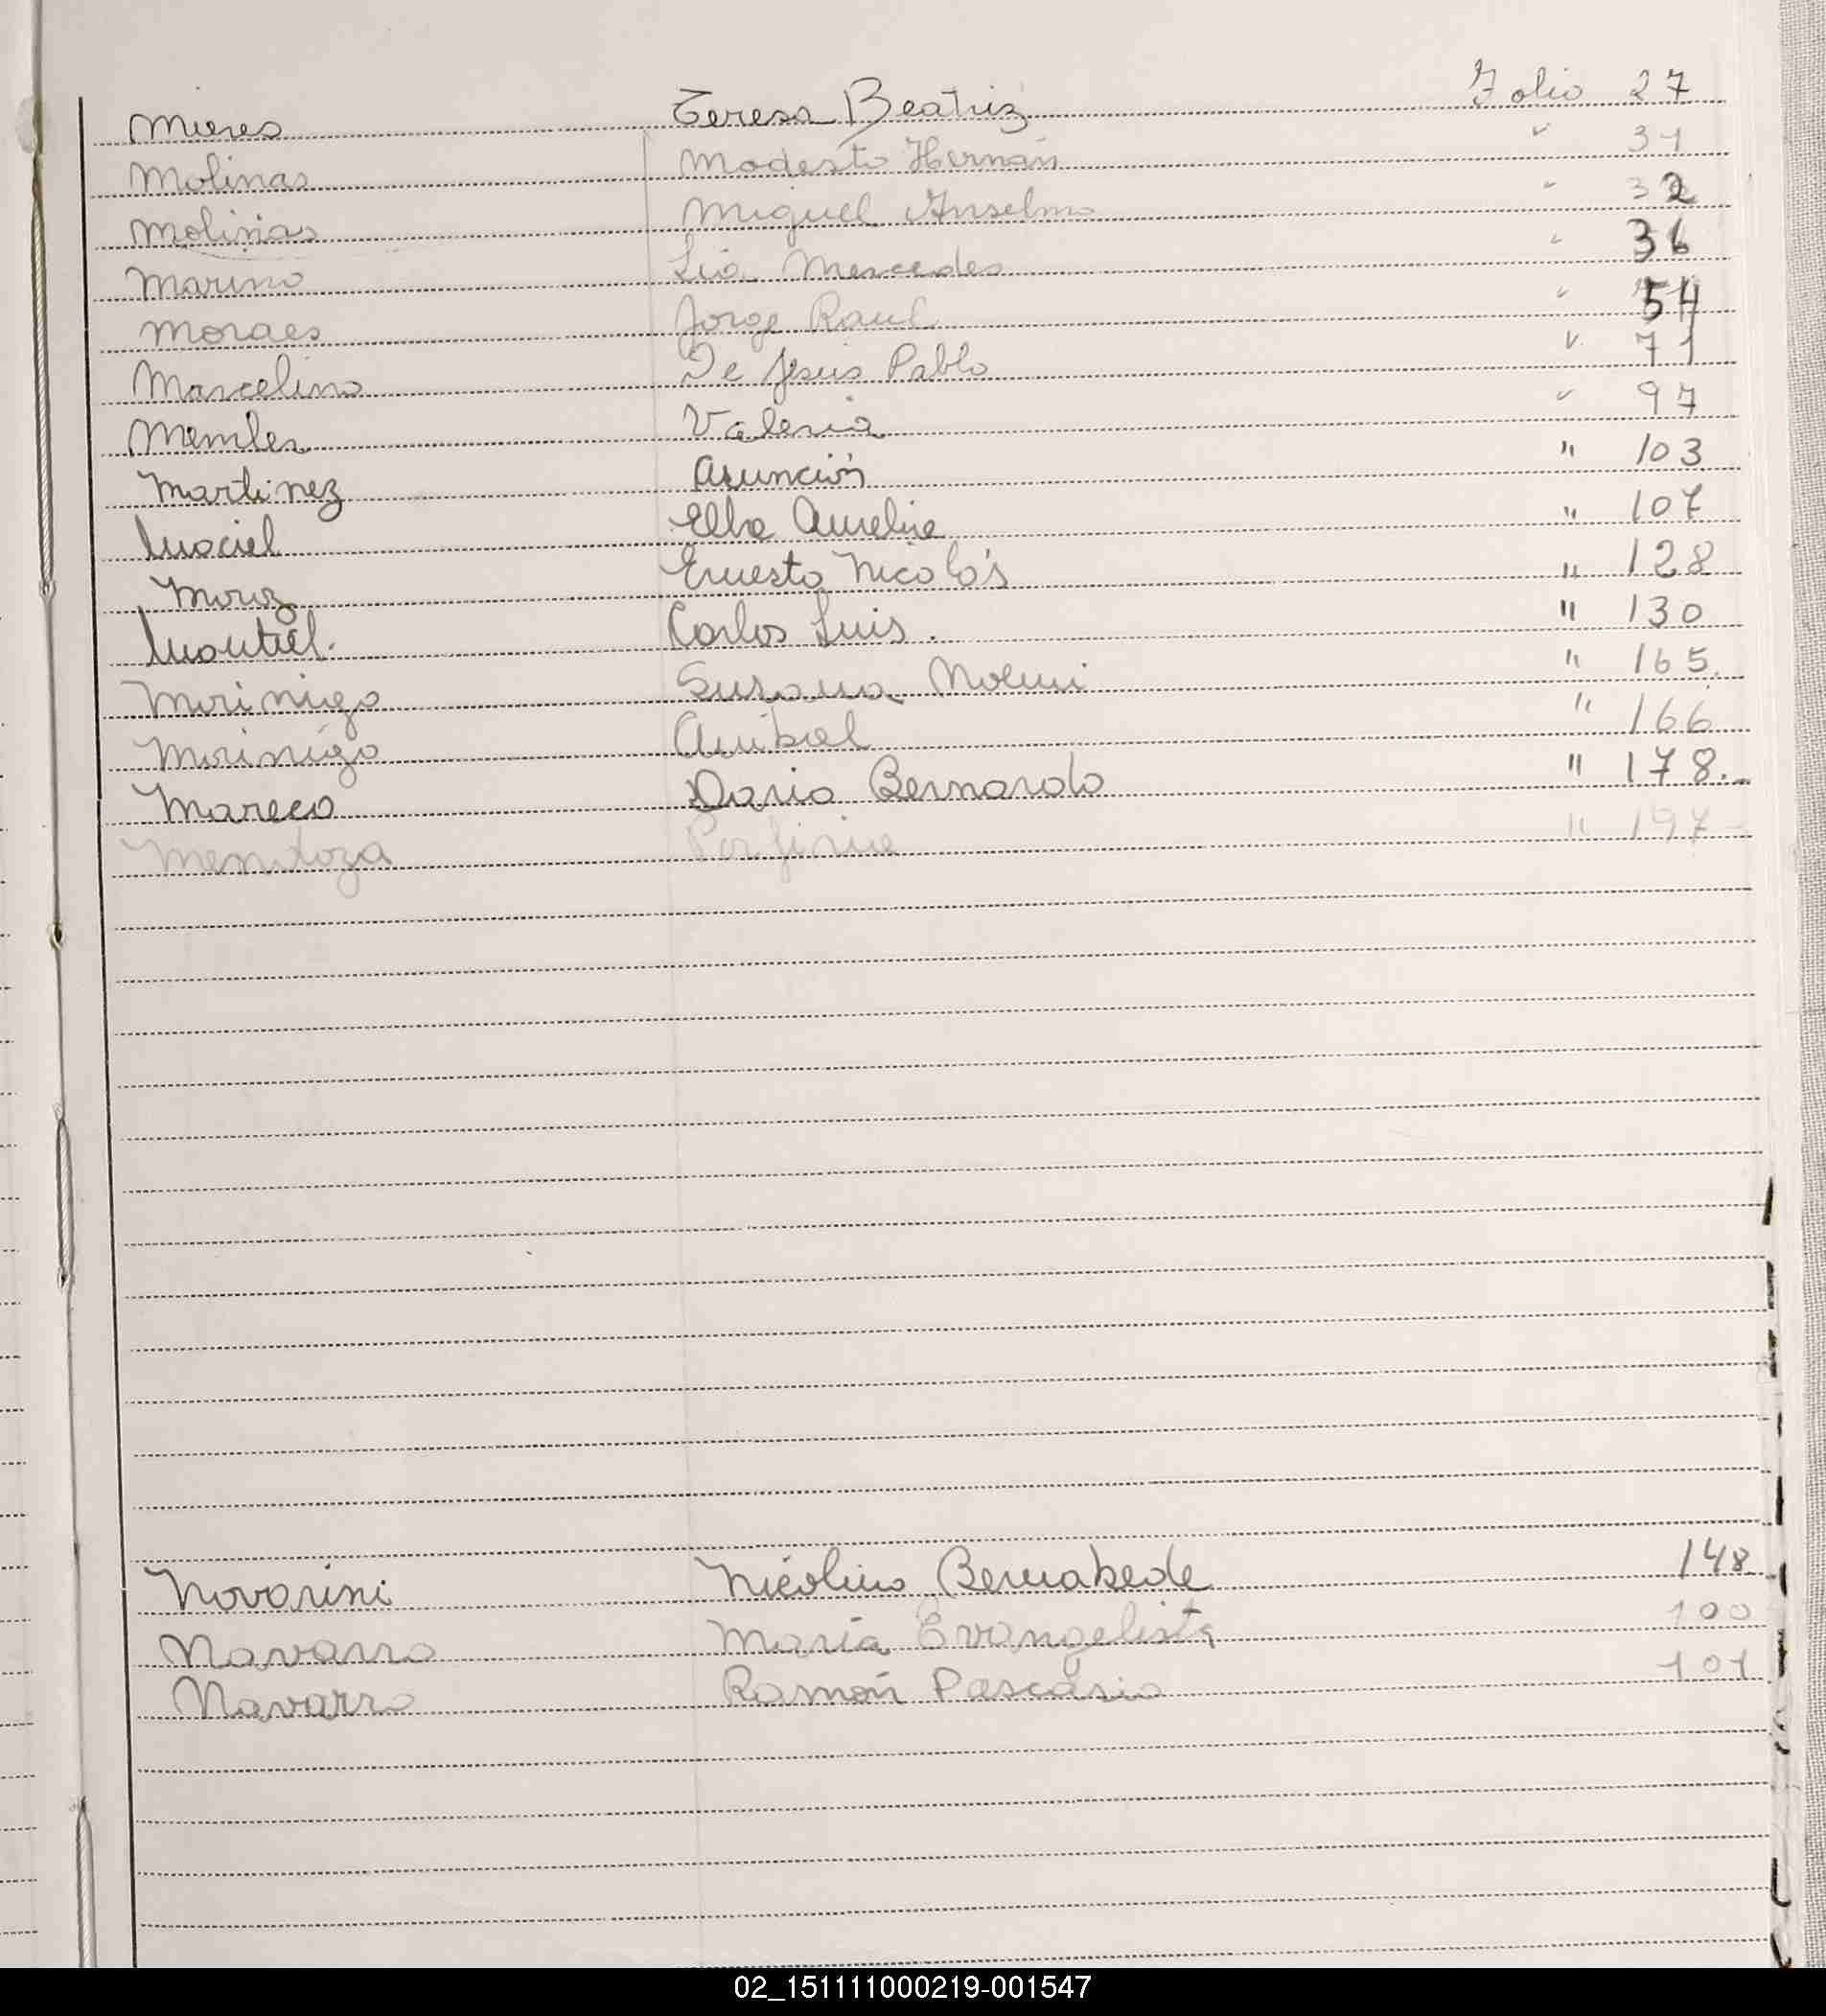 Mieres Teresa Beatriz Folio 27
Molinas Modesto Hernán " 31
Molinas Miguel Anselmo " 32
Marino Lia Mercedes " 36
Moraes Jorge Raul " 54
Marcelino De Jesús Pablo " 71
Valeria " 97
Martinez Asunción " 103
Maciel Elba Aurelia " 107
Moroz Ernesto Nicolás " 128
Montiel. Carlos Luis. " 130
Morinigo Susana Noemi " 165.
Morinigo Anibal " 166
Mareco Dario Bernardo " 178.-
Mendoza Porfiria " 197-
Novarini Nicolino Bernabede 148
Navarro María Evangelista 100
Navarro Ramón Pascasio 101
02_151111000219-001547